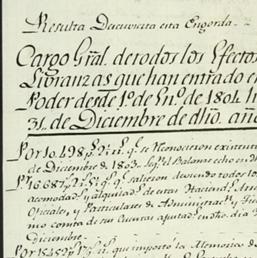 Resulta Descubierta esta Engorda
Cargo Gral. de todos los Efectos
Libranzas que han entrado en
Poder desde 1º de En.º de 1804 h
31. de Diciembre de dho. año
P.r 10.498 p.s q.e se reconocieron existent
de Diciembre de 1803. Seg.n el Balance echo en d
P.r 16.687 p.s q.e salieron deviendo todos lo
acomodad.s y alquilad.s de estas Haciend.s
Oficiales, y Particulares de Administrac.n y
mo consta de sus Cuentas ajustad.s en dho. dia 3
Diciembre
P.r 15452 p.s q.e importó la Memoria de